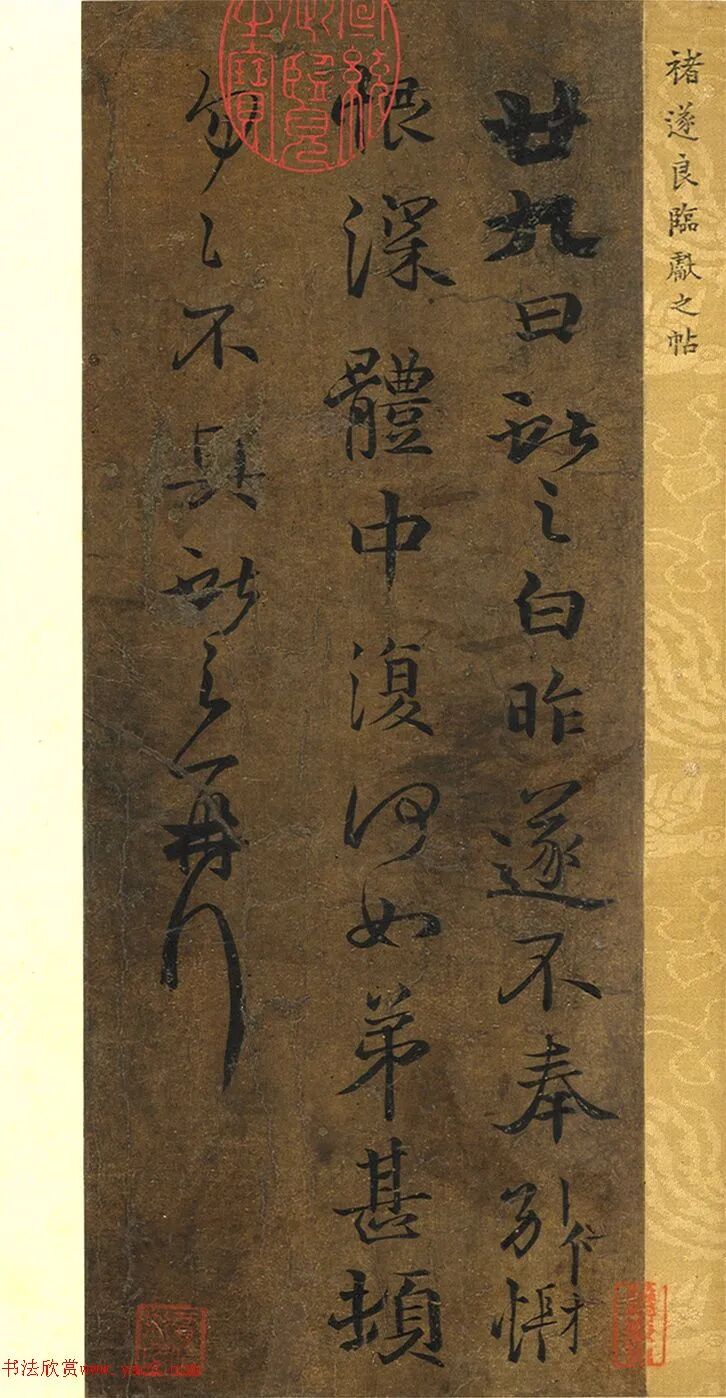 褚遂良臨獻之帖
廿九日獻之白昨遂不奉別悵
恨深體中復何如弟甚頓
匆匆不具獻之再拜
宣統御覽之寶
书法欣赏www.yac8.com